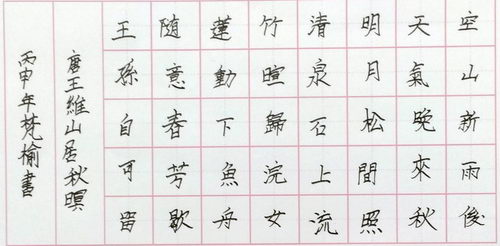 空山新雨後
天氣晚來秋
明月松間照
清泉石上流
竹暄歸浣女
蓮動下魚舟
随意春芳歇
王孫自可留
唐王維山居秋暝
丙申年梵榆書